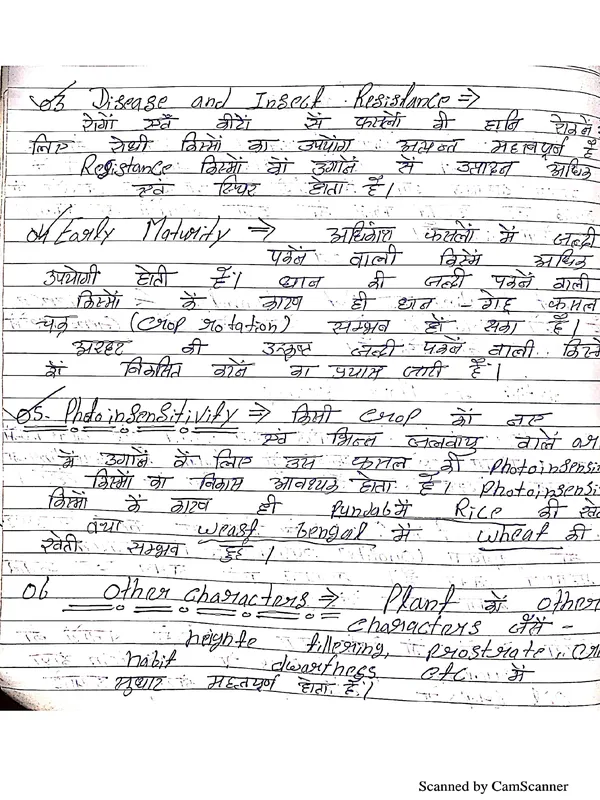 03 Disease and Insect Resistance ⇒
रोगों एवं कीटों से फसलों की हानि रोकने
लिए रोधी किस्मों का उपयोग अत्यन्त महत्वपूर्ण है
Registance किस्मों को उगाने से उत्पादन अधिक
एवं स्थिर होता है।
04 Early Maturity ⇒ अधिकांश फसलों में जल्दी
पकने वाली किस्में अधिक
उपयोगी होती है। धान की जल्दी पकने वाली
किस्मों के कारण ही धान - गेहू फसल
चक्र (crop rotation) सम्भव हो सका है।
अरहर की उत्कृष्ट जल्दी पकने वाली किस्मों
को विकसित करने का प्रयास जारी है।
05- Photoinsensitivify ⇒ किसी crop को नए
एवं भिन्न जलवायु वाले ar
में उगाने के लिए उस फसल की photoinsensi
किस्मों का विकास आवश्यक होता है। photoinsensi
किस्मों के कारण ही Punjab में Rice की खे
तथा weast bengal में wheat की
खेती सम्भव हुई।
06 Other Characters ⇒ Plant के other
characters जैसे -
heighte tillering, prostrate,
habit dwarfness etc. में
सुधार महत्वपूर्ण होता है।
Scanned by CamScanner